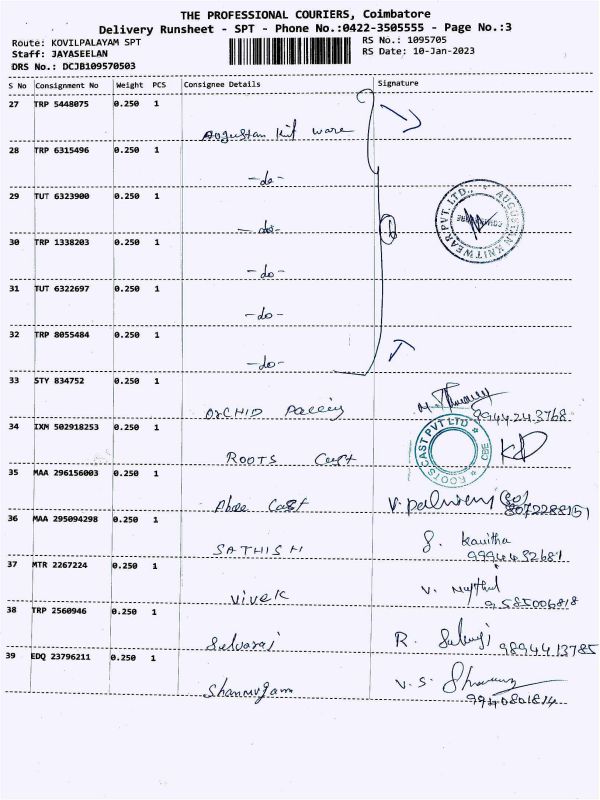 THE PROFESSIONAL COURIERS, Coimbatore
Delivery Runsheet - SPT - Phone No.:0422-3505555 - Page No.:3
Route: KOVILPALAYAM SPT
Staff: JAYASEELAN
DRS No.: DCJB109570503
RS No.: 1095705
RS Date: 10-Jan-2023
S No Consignment No Weight PCS Consignee Details Signature
27 TRP 5448075 0.250 1
Augustan knit ware
28 TRP 6315496 0.250 1
-do-
29 TUT 6323900 0.250 1
-do-
30 TRP 1338203 0.250 1
-do-
31 TUT 6322697 0.250 1
-do-
32 TRP 8055484 0.250 1
-do-
AUGUSTAN KNITWEAR PVT. LTD.,
33 STY 834752 0.250 1
ORCHID
9944243768
34 IXM 502918253 0.250 1
ROOTS Cast
ROOTS CAST PVT LTD CBE
35 MAA 296156003 0.250 1
Cast
V. (so)
8072288151
36 MAA 295094298 0.250 1
SATHISH S. Kavitha
9994452681
37 MTR 2267224 0.250 1
Vivek V.
9585006818
38 TRP 2560946 0.250 1
Selvaraj R. 9894413785
39 EDQ 23796211 0.250 1
Shanmugam V. S.
9940801814